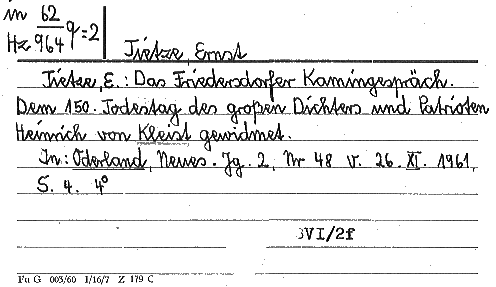 in 62 q=2
Hz 964
Tietze, Ernst
Tietze, E.: Das Friedersdorfer Kamingespräch.
Dem 150. Todestag des großen Dichters und Patrioten
Heinrich von Kleist gewidmet.
In: Oderland, Neues. Jg. 2, Nr 48 v. 26. XI. 1961,
S. 4. 4°
VI/2f
Fu G 003/60 I/16/7 Z 179 C